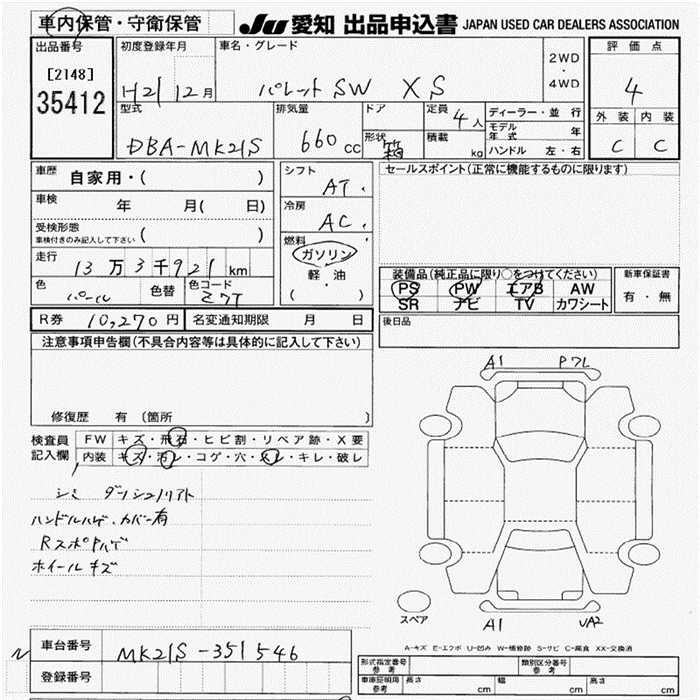 車内保管・守衛保管
JU 愛知 出品申込書 JAPAN USED CAR DEALERS ASSOCIATION
出品番号
[2148]
35412
初度登録年月
H21 12月
車名・グレード
パレット SW XS
2WD
・
4WD
評価点
4
外装 内装
C C
型式
DBA-MK21S
排気量
660 cc
ドア
形状 箱
定員 4人
積載 kg
ディーラー・並行
モデル年式 年
ハンドル 左・右
車歴 自家用・( )
車検 年 月( 日)
受検形態
車検付きのみ記入して下さい ( )
走行 13万3千921km
色 パール
色替
色コード Z7T
シフト AT
冷房 AC
燃料
ガソリン
軽油
( )
セールスポイント(正常に機能するものに限ります)
装備品(純正品に限り○をつけてください)
PS PW エアB AW
SR ナビ TV カワシート
新車保証書
有・無
後日品
R券 10,270円
名変通知期限 月 日
注意事項申告欄(不具合内容等は具体的に記入して下さい)
修復歴 有 〔箇所 〕
検査員記入欄
FW キズ・飛石・ヒビ割・リペア跡・X要
内装 キズ・汚レ・コゲ・穴・スレ・キレ・破レ
シミ
ハンドルハゲ、カバー有
ホイールキズ
A1
A1 UA2
スペア
A-キズ E-エクボ U-凹み W-補修跡 S-サビ C-腐食 XX-交換済
車台番号 MK21S-351546
登録番号
形式指定番号 参考
類別区分番号 参考
車庫証明用 参考 長さ cm 幅 cm 高さ cm